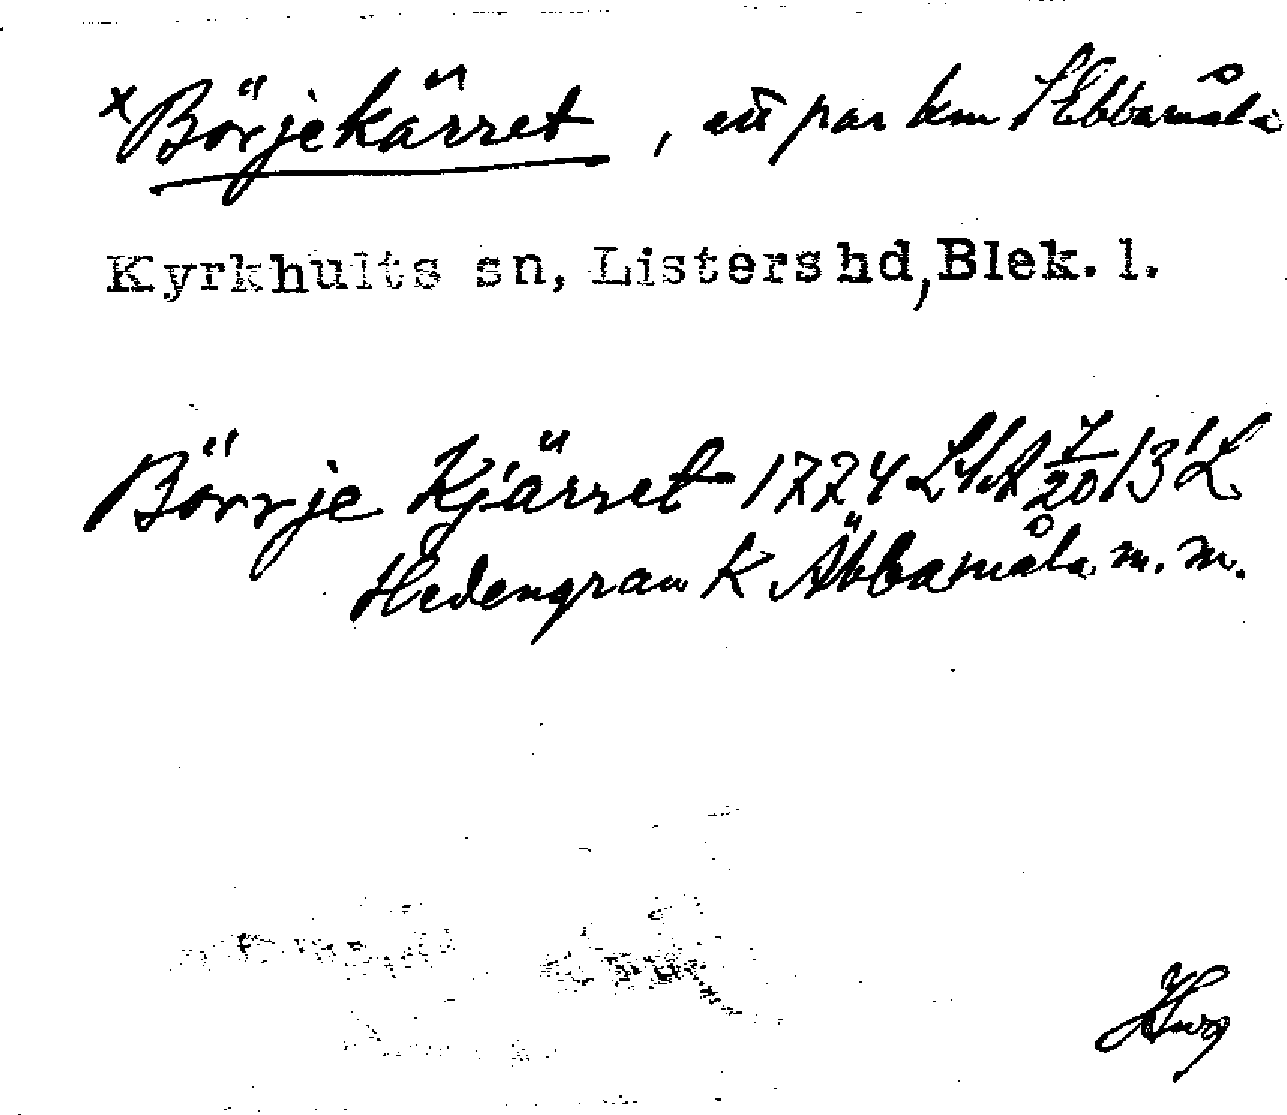 x Börjekärret , ett par km S Ebbamåla
Kyrkhults sn, Listers hd, Blek. l.
Börrje Kjärret 1774 LSA 7/20 13' L
Hedengran K Äbbamåla m. m.